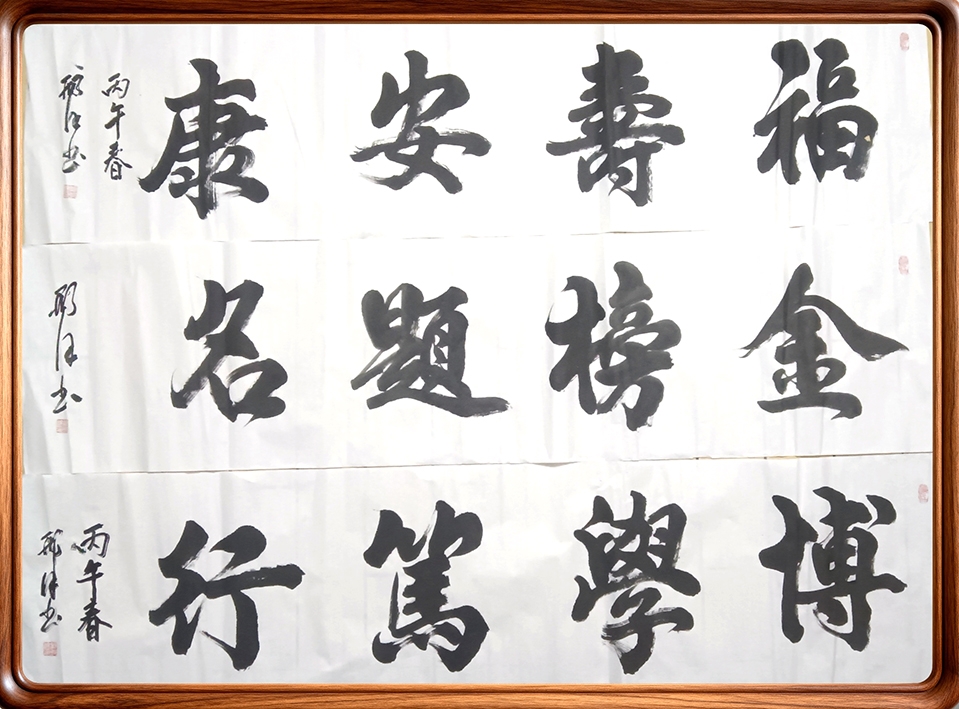 福壽安康
丙午春
金榜題名
博學篤行
丙午春